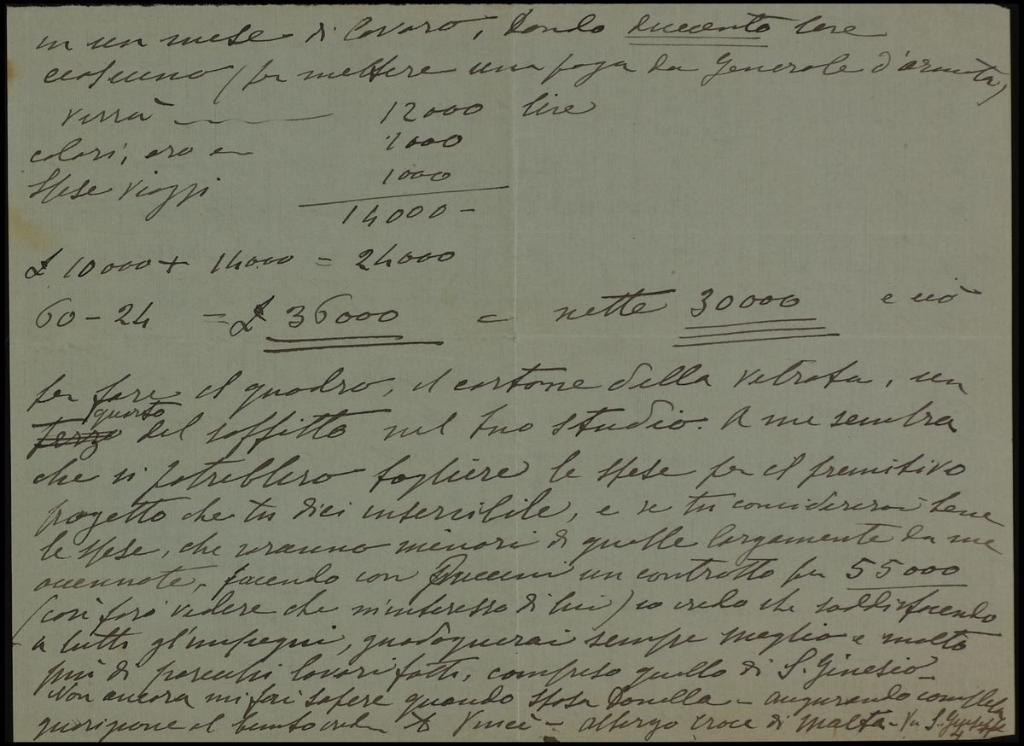 in un mese di lavoro, dando duecento lire
ciascuno (per mettere una paga da Generale d'armata)
verrà 12000 lire
colori, oro e 1000
spese viaggi 1000
14000 -
£ 10000 + 14000 = 24000
60 - 24 = £ 36000 = nette 30000 e ciò
per fare il quadro, il cartone della vetrata, un
terzo quarto del soffitto nel tuo studio. A me sembra
che si potrebbero togliere le spese per il premitivo
progetto che tu dici inservibile, e se tu considererai bene
le spese, che saranno minori di quelle largamente da me
accennate, facendo con Puccini un contratto per 55000
(così farò vedere che m'interesso di lui) io credo che soddisfacendo
a tutti gl'impegni, guadagnerai sempre meglio e molto
più di parecchi lavori fatti, compreso quello di S. Ginesio -
Non ancora mi fai sapere quando sposa Donella - augurando completa
guarigione al - albergo croce di Malta - Via S. Giuseppe 4